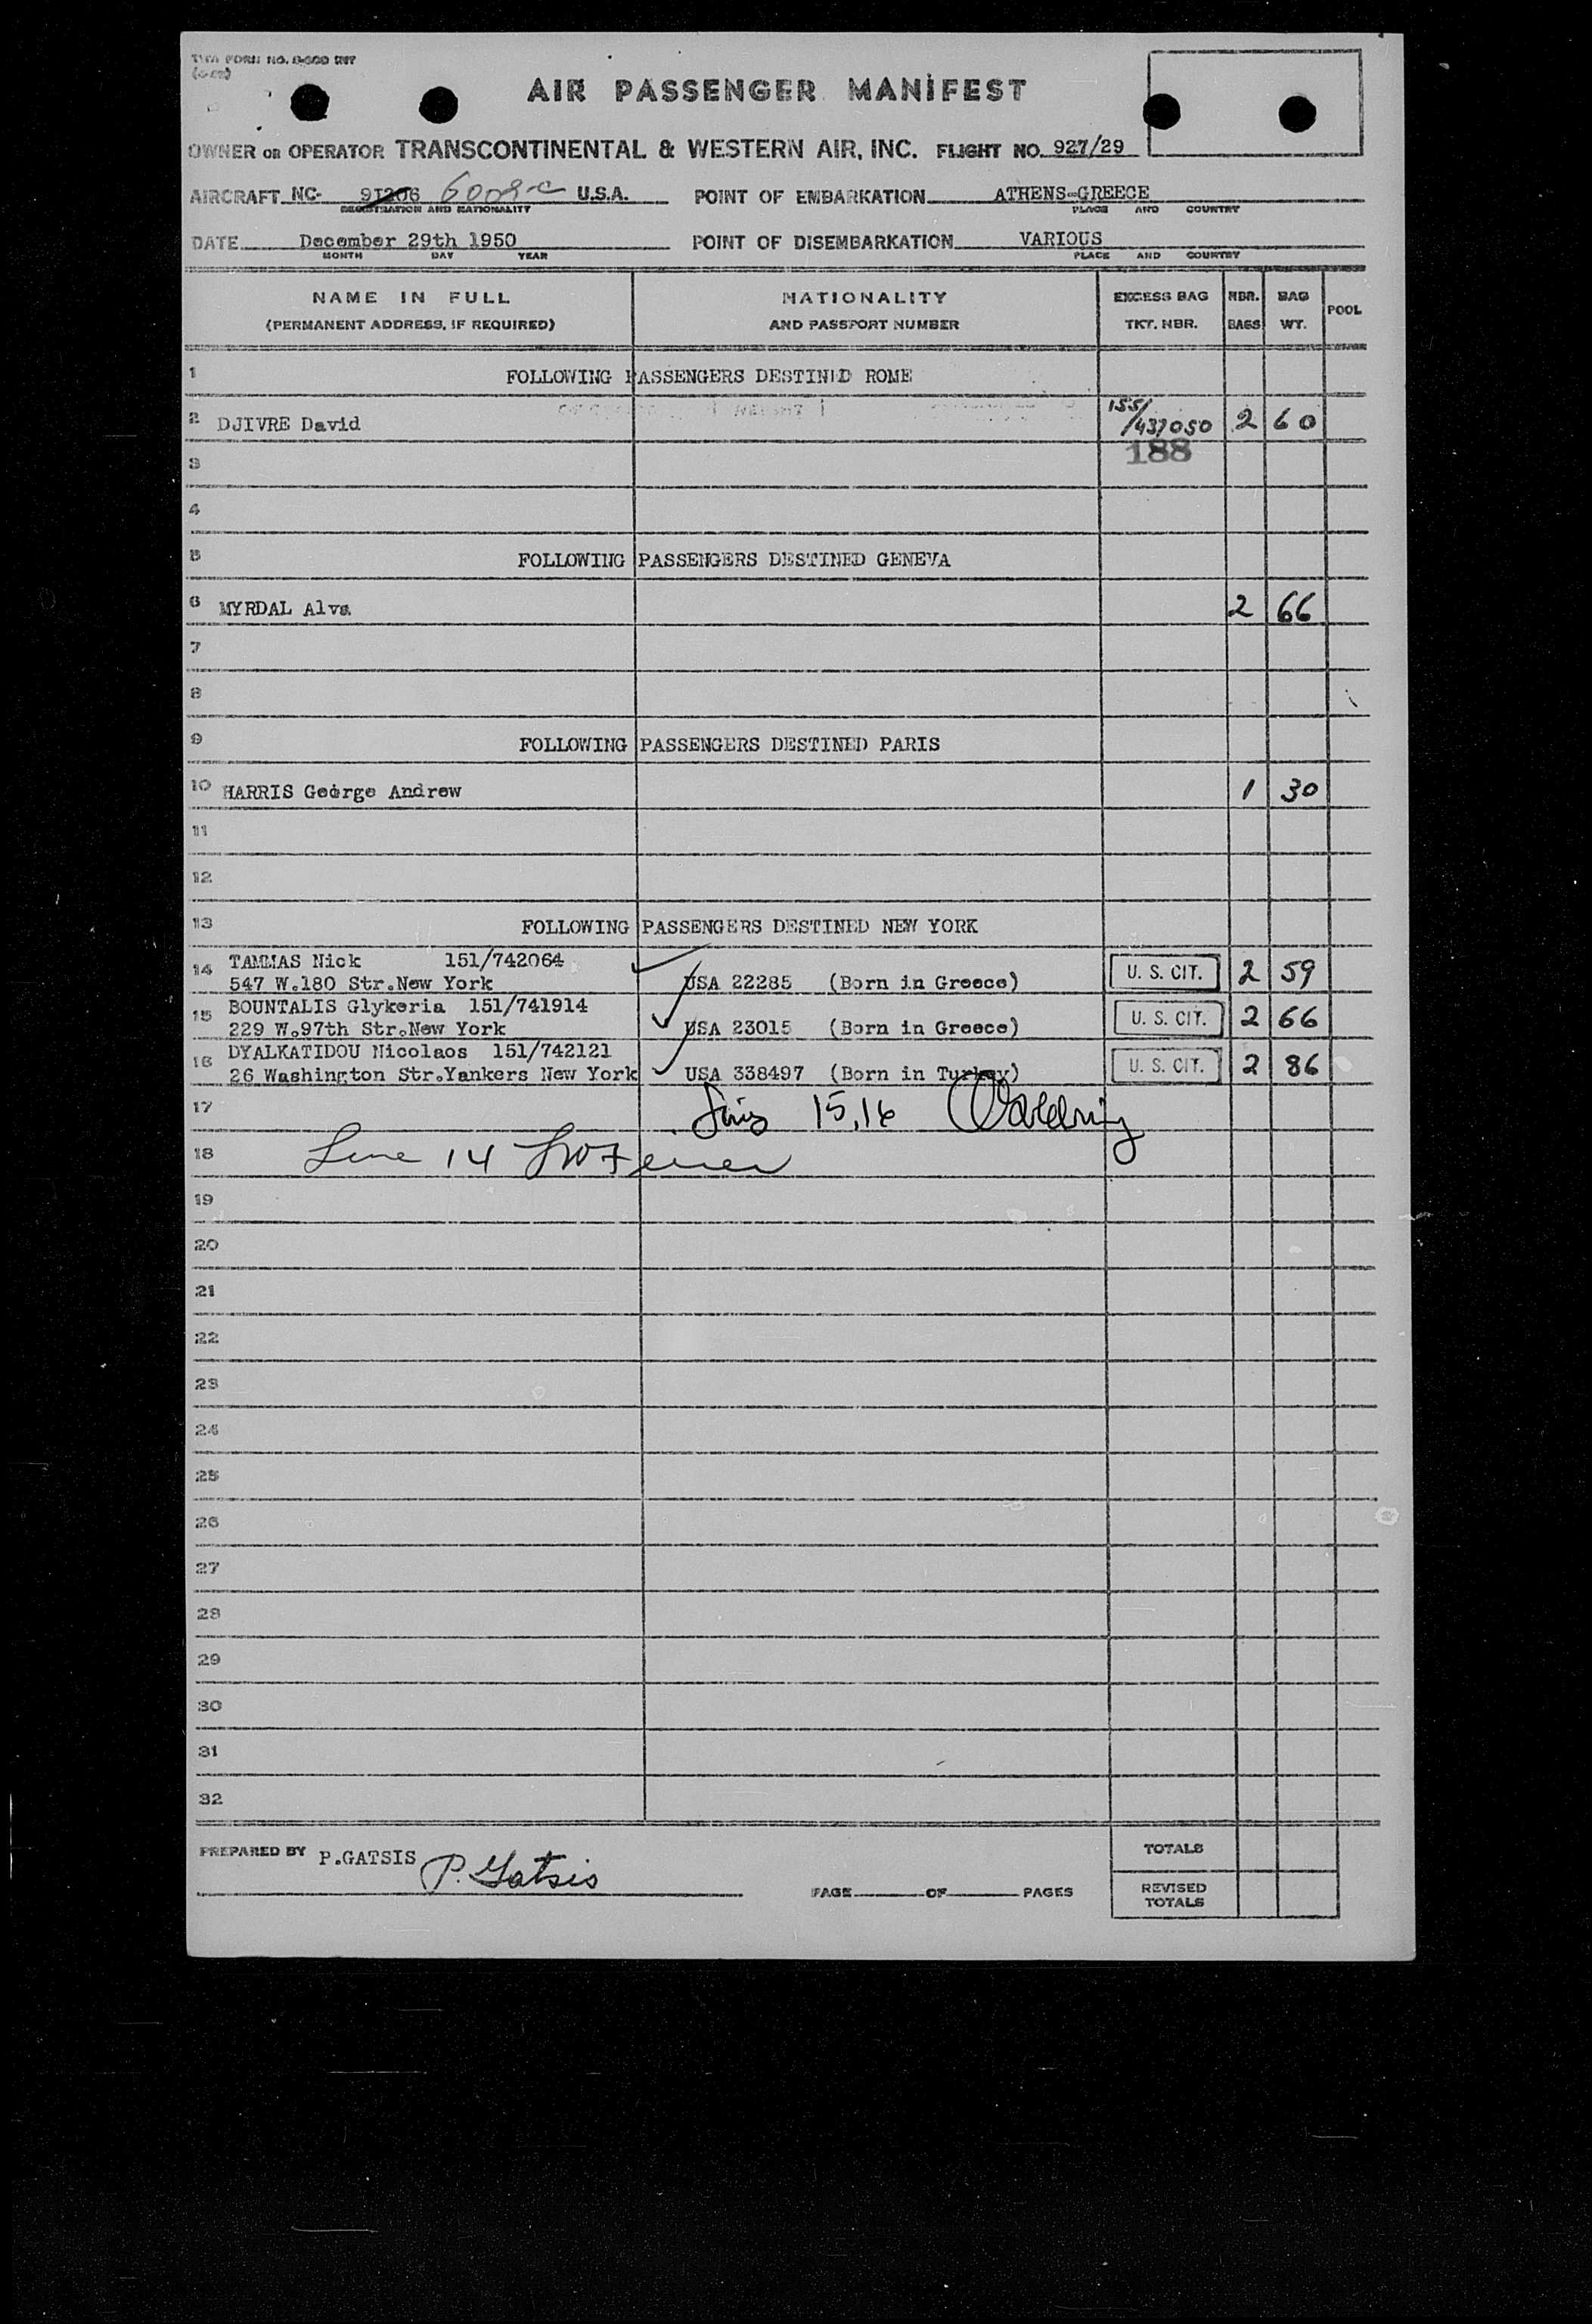 AIR PASSENGER MANIFEST
OWNER OR OPERATOR TRANSCONTINENTAL & WESTERN AIR, INC. FLIGHT NO. 927/29
AIRCRAFT NC- 91206 6008-C U.S.A. POINT OF EMBARKATION ATHENS-GREECE
REGISTRATION AND NATIONALITY PLACE AND COUNTRY
DATE December 29th 1950 POINT OF DISEMBARKATION VARIOUS
MONTH DAY YEAR PLACE AND COUNTRY
NAME IN FULL NATIONALITY EXCESS BAG NBR. BAG POOL
(PERMANENT ADDRESS, IF REQUIRED) AND PASSPORT NUMBER TKT. NBR. BAGS WT.
1 FOLLOWING PASSENGERS DESTINED ROME
2 DJIVRE David 155/437050 2 60
3 188
4
5 FOLLOWING PASSENGERS DESTINED GENEVA
6 MYRDAL Alva 2 66
7
8
9 FOLLOWING PASSENGERS DESTINED PARIS
10 HARRIS George Andrew 1 30
11
12
13 FOLLOWING PASSENGERS DESTINED NEW YORK
14 TAMMAS Nick 151/742064
547 W.180 Str.New York USA 22285 (Born in Greece) U. S. CIT. 2 59
15 BOUNTALIS Glykeria 151/741914
229 W.97th Str.New York USA 23015 (Born in Greece) U. S. CIT. 2 66
16 DYALKATIDOU Nicolaos 151/742121
26 Washington Str.Yankers New York USA 338497 (Born in Turkey) U. S. CIT. 2 86
17 15,16
18 Line 14
19
20
21
22
23
24
25
26
27
28
29
30
31
32
PREPARED BY P.GATSIS P. Gatsis TOTALS
PAGE OF PAGES REVISED TOTALS